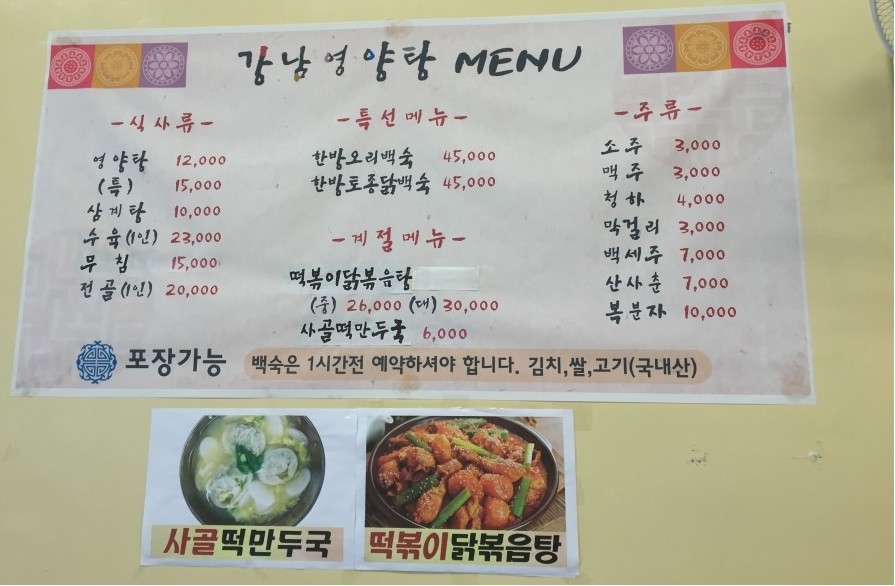 강남영양탕 MENU
-식사류-
영양탕 12,000
(특) 15,000
삼계탕 10,000
수육(1인) 23,000
무침 15,000
전골(1인) 20,000
-특선메뉴-
한방오리백숙 45,000
한방토종닭백숙 45,000
-계절메뉴-
떡볶이닭볶음탕
(중) 26,000 (대) 30,000
사골떡만두국 6,000
-주류-
소주 3,000
맥주 3,000
청하 4,000
막걸리 3,000
백세주 7,000
산사춘 7,000
복분자 10,000
포장가능
백숙은 1시간전 예약하셔야 합니다. 김치,쌀,고기(국내산)
사골떡만두국
떡볶이닭볶음탕